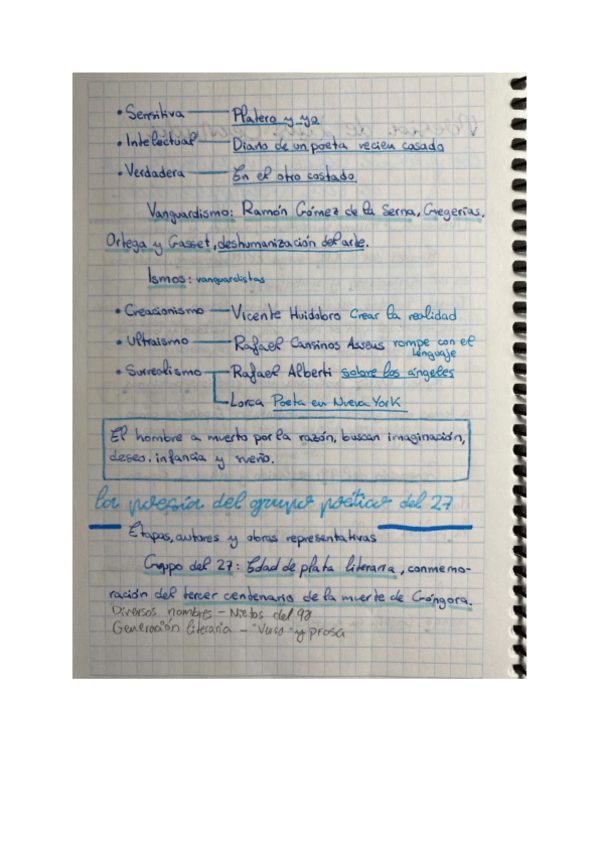 • Sensitiva — Platero y yo
• Intelectual — Diario de un poeta recien casado
• Verdadera — En el otro costado
Vanguardismo: Ramón Gómez de la Serna, Gregerías.
Ortega y Gasset, deshumanización del arte.
Ismos: vanguardistas
• Creacionismo — Vicente Huidobro Crear la realidad
• Ultraismo — Rafael Cansinos Asseus rompe con el
lenguaje
• Surrealismo — Rafael Alberti sobre los ángeles
Lorca Poeta en Nueva York
El hombre a muerto por la razón, buscan imaginación,
deseo. infancia y sueño.
la poesía del grupo poético del 27
Etapas, autores y obras representativas
Gruppo del 27: Edad de plata literaria, conmemo-
ración del tercer centenario de la muerte de Góngora.
Diversos nombres - Nietos del 98
Generación literaria - y prosa